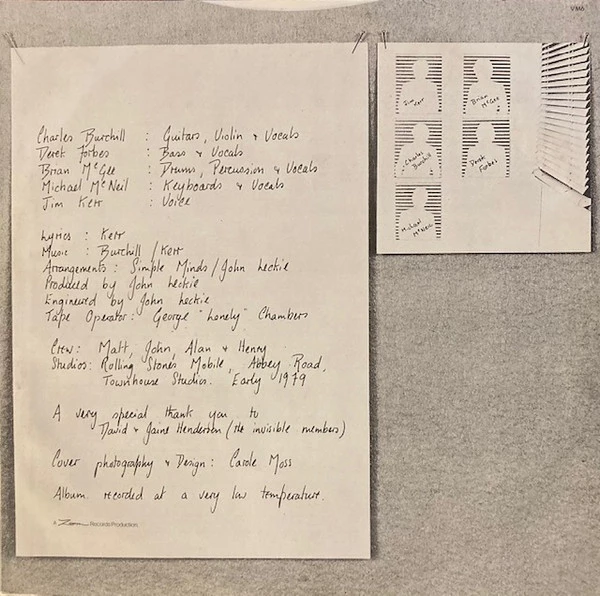 V2165
Charles Burchill : Guitars, Violin + Vocals
Derek Forbes : Bass + Vocals
Brian McGee : Drums, Percussion + Vocals
Michael McNeil : Keyboards + Vocals
Jim Kerr : Voice
Lyrics : Kerr
Music : Burchill / Kerr
Arrangements : Simple Minds / John Leckie
Produced by John Leckie
Engineered by John Leckie
Tape Operator : George "Lonely" Chambers
Crew : Matt, John, Alan + Henry
Studios : Rolling Stones Mobile, Abbey Road,
Townhouse Studios. Early 1979
A very special thank you to
David + Jaine Henderson (the invisible members)
Cover photography + Design : Carole Moss
Album recorded at a very low temperature.
A Zoom Records Production
Jim Kerr
Brian McGee
Charles Burchill
Derek Forbes
Michael McNeil